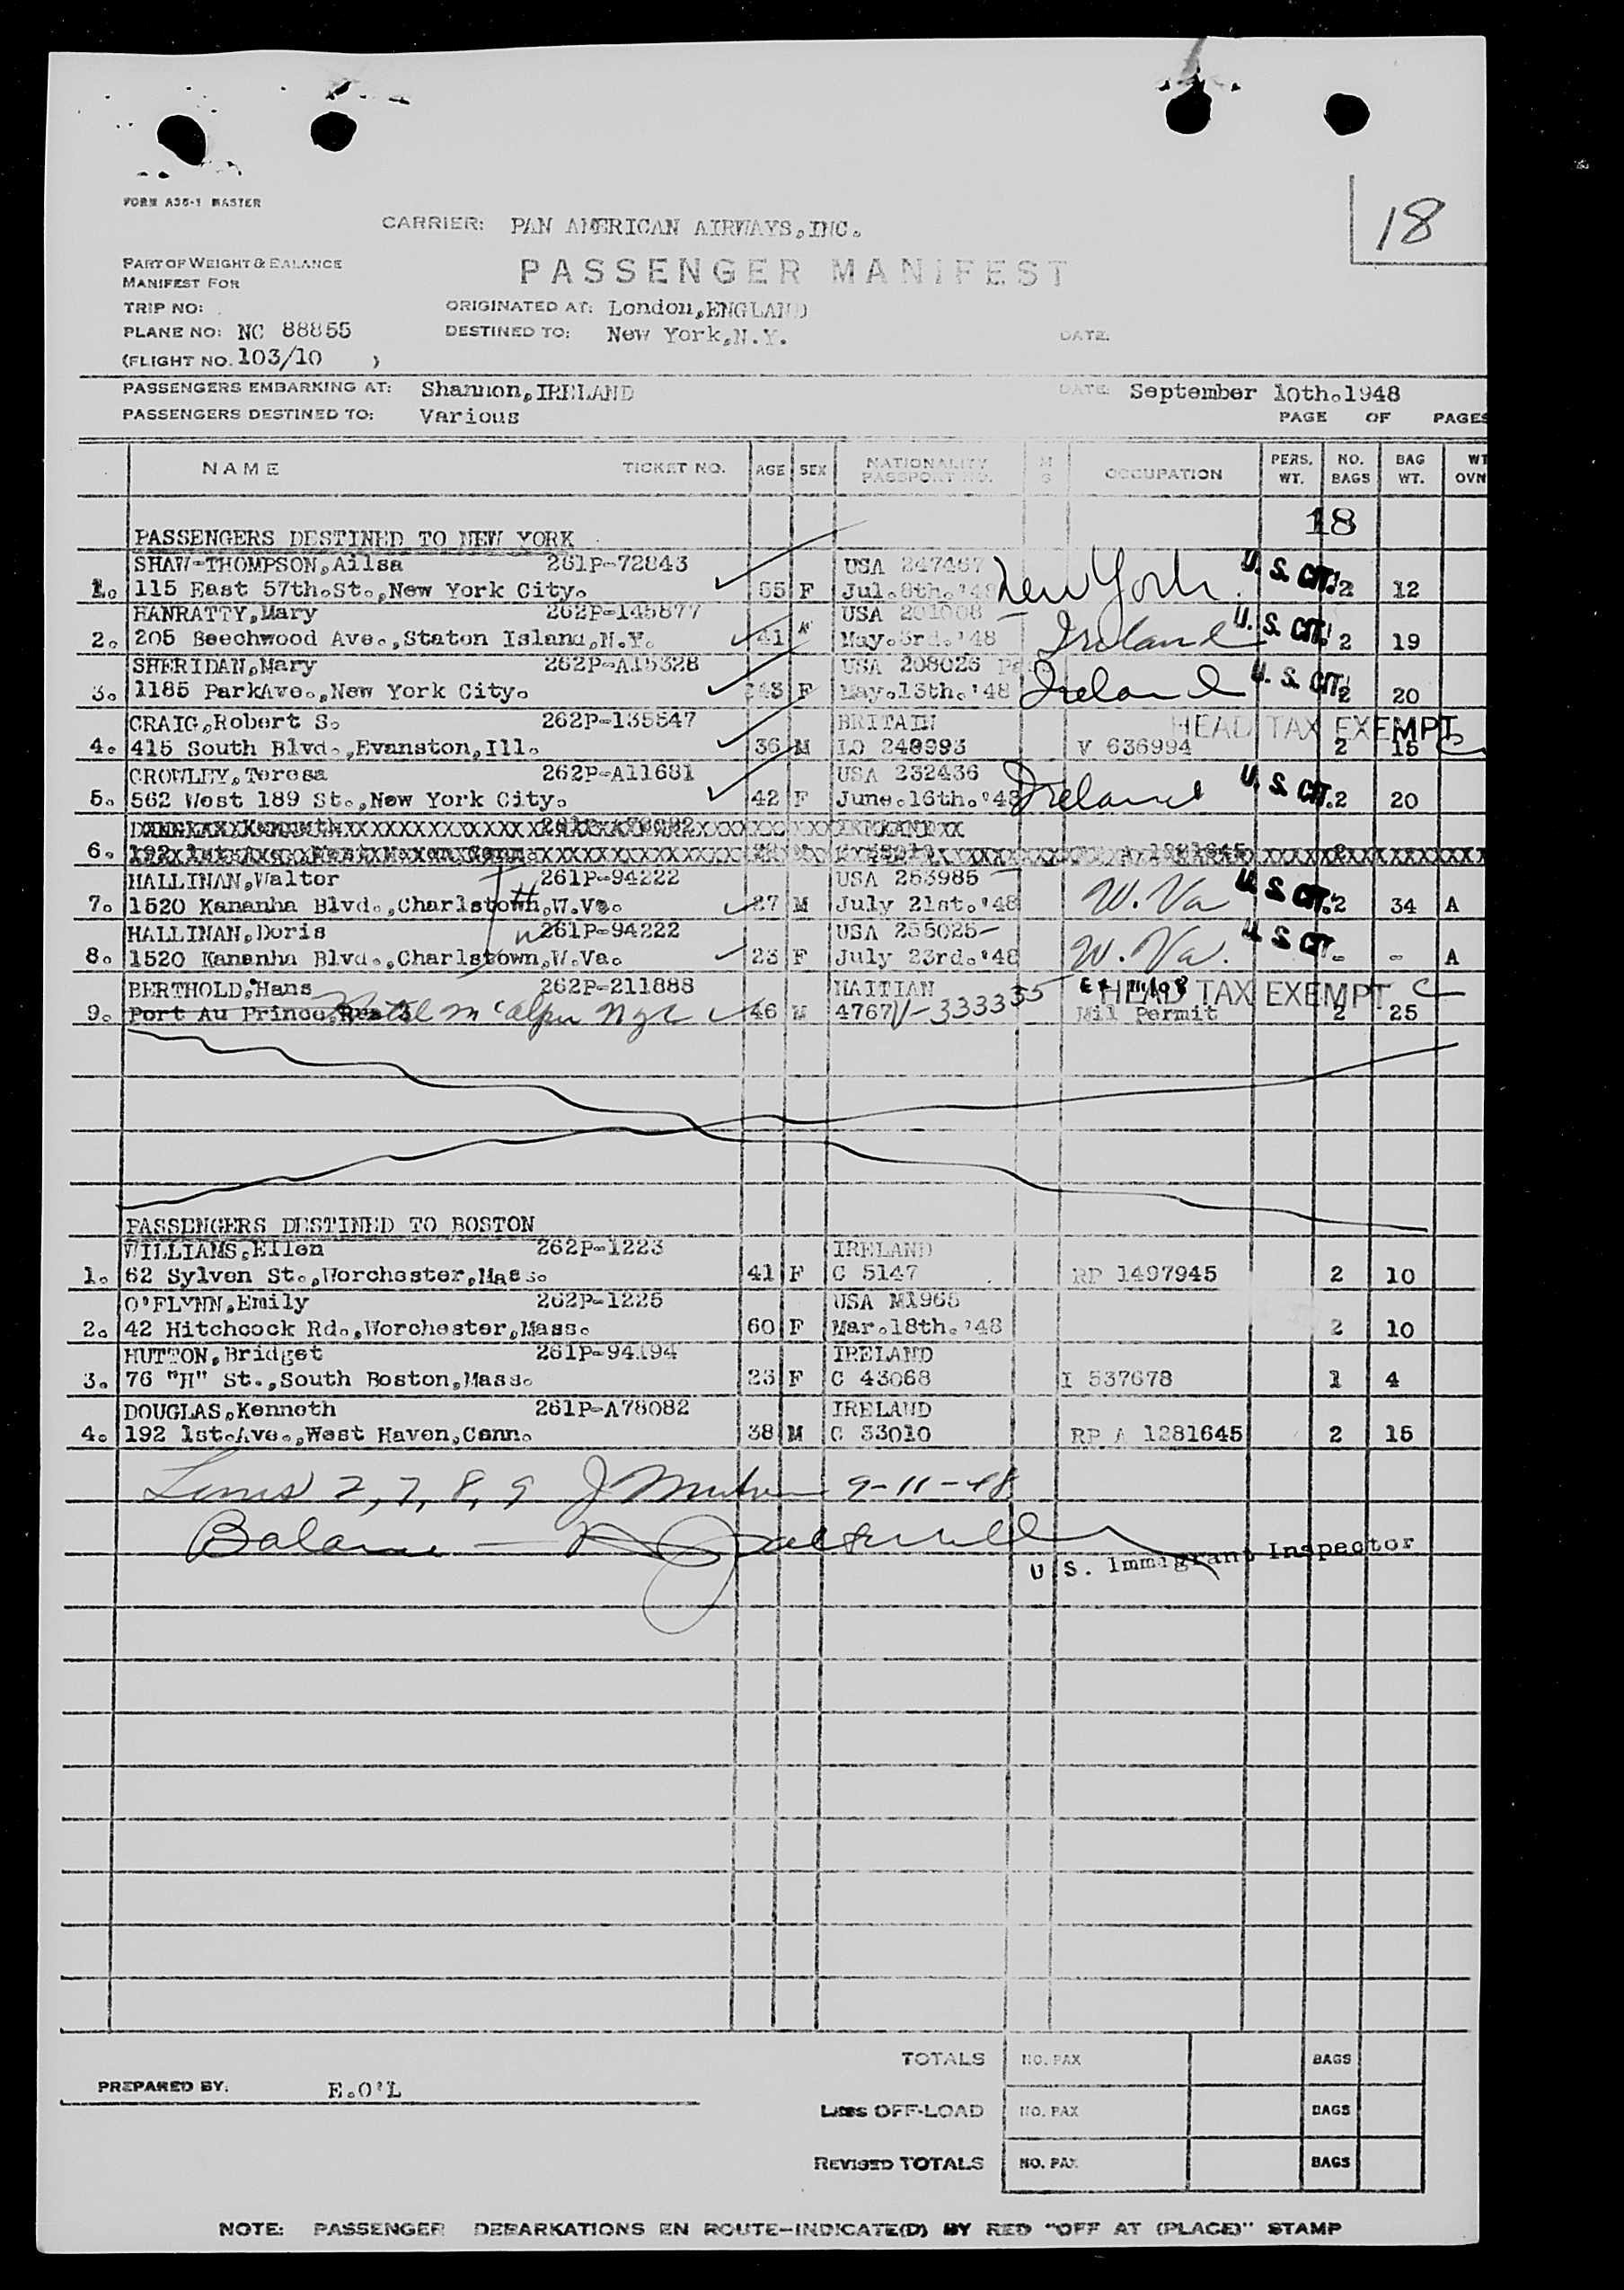 FORM A36-1 MASTER
18
CARRIER: PAN AMERICAN AIRWAYS,INC.
PART OF WEIGHT & BALANCE
MANIFEST FOR
PASSENGER MANIFEST
TRIP NO:
ORIGINATED AT: London,ENGLAND
PLANE NO: NC 88855
DESTINED TO: New York,N.Y.
DATE:
(FLIGHT NO. 103/10 )
PASSENGERS EMBARKING AT: Shannon,IRELAND
DATE: September 10th.1948
PASSENGERS DESTINED TO: Various
PAGE OF PAGES
NAME TICKET NO. AGE SEX NATIONALITY PASSPORT NO. M S OCCUPATION PERS. WT. NO. BAGS BAG WT. WT OVN
18
PASSENGERS DESTINED TO NEW YORK
SHAW-THOMPSON,Ailsa 261P-72843 USA 247467 U. S. CIT.
1. 115 East 57th.St.,New York City. 55 F Jul.8th.'48 New York. 2 12
HANRATTY,Mary 262P-145877 USA 201008 U. S. CIT.
2. 205 Beechwood Ave.,Staton Island,N.Y. 41 May.3rd.'48 Ireland 2 19
SHERIDAN,Mary 262P-A15328 USA 208026 U. S. CIT.
3. 1185 ParkAve.,New York City. 43 F May.13th.'48 Ireland 2 20
CRAIG,Robert S. 262P-135547 BRITAIN HEAD TAX EXEMPT
4. 415 South Blvd.,Evanston,Ill. 36 M LO 248993 V 636994 2 15 C
CROWLEY,Teresa 262P-A11681 USA 232436 U. S. CIT.
5. 562 West 189 St.,New York City. 42 F June.16th.'48 Ireland 2 20
6.
HALLINAN,Walter 261P-94222 USA 253985 U. S. CIT.
7. 1520 Kananha Blvd.,Charlstown,W.Va. 27 M July 21st.'48 W. Va 2 34 A
HALLINAN,Doris 261P-94222 USA 255025 U. S. CIT.
8. 1520 Kananha Blvd.,Charlstown,W.Va. 23 F July 23rd.'48 W. Va. - - A
BERTHOLD,Hans 262P-211888 HAITIAN HEAD TAX EXEMPT C
9. Port Au Prince, Hotel McAlpin NYC 46 M 4767 V-333335 Mil Permit 2 25
PASSENGERS DESTINED TO BOSTON
WILLIAMS,Ellen 262P-1223 IRELAND
1. 62 Sylven St.,Worchester,Mass. 41 F C 5147 RP 1497945 2 10
O'FLYNN,Emily 262P-1225 USA M1965
2. 42 Hitchcock Rd.,Worchester,Mass. 60 F Mar.18th.'48 2 10
HUTTON,Bridget 261P-94194 IRELAND
3. 76 "H" St.,South Boston,Mass. 23 F C 43068 I 537678 1 4
DOUGLAS,Kenneth 261P-A78082 IRELAND
4. 192 1st.Ave.,West Haven,Conn. 38 M C 33010 RP A 1281645 2 15
Lines 2, 7, 8, 9 9-11-48
Balance —
U. S. Immigrant Inspector
TOTALS NO. PAX BAGS
PREPARED BY: E.O'L
LESS OFF-LOAD NO. PAX BAGS
REVISED TOTALS NO. PAX BAGS
NOTE: PASSENGER DEBARKATIONS EN ROUTE-INDICATE(D) BY RED "OFF AT (PLACE)" STAMP